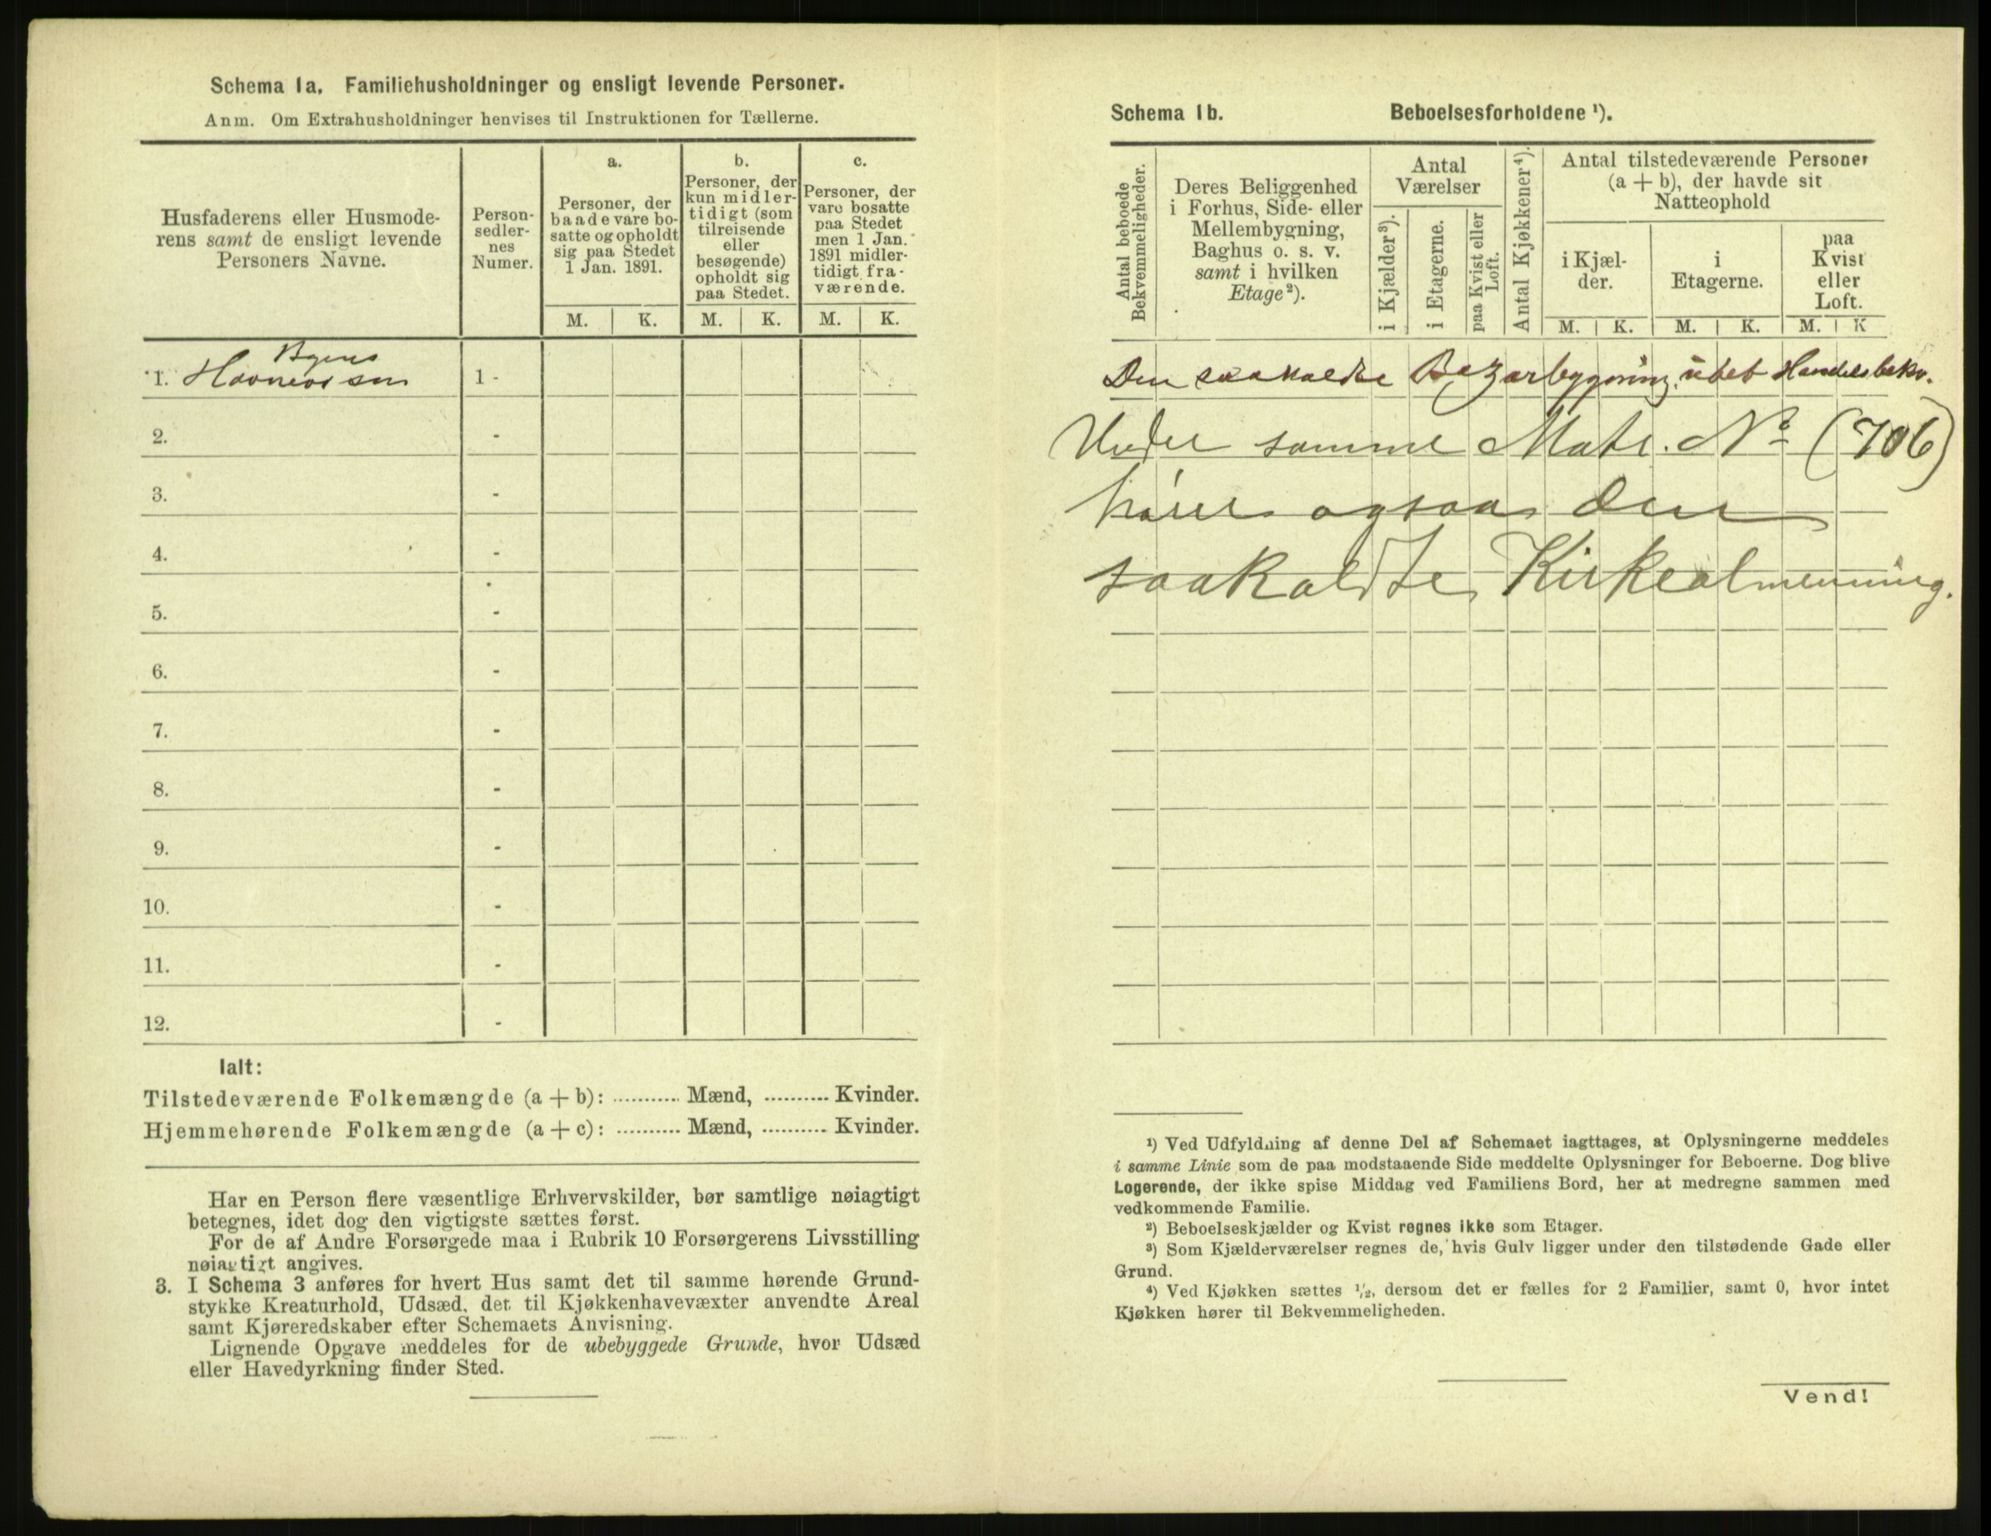 Schema 1a. Familiehusholdninger og ensligt levende Personer.
Anm. Om Extrahusholdninger henvises til Instruktionen for Tællerne.
Husfaderens eller Husmode-
rens samt de ensligt levende
Personers Navne.
Person-
sedler-
nes
Numer.
a.
Personer, der
baade vare bo-
satte og opholdt
sig paa Stedet
1 Jan. 1891.
b.
Personer, der
kun midler-
tidigt (som
tilreisende
eller
besøgende)
opholdt sig
paa Stedet.
c.
Personer, der
vare bosatte
paa Stedet
men 1 Jan.
1891 midler-
tidigt fra-
værende.
M. K. M. K. M. K.
Byens
1. 1 -
2. -
3. -
4. -
5. -
6. -
7. -
8. -
9. -
10. -
11. -
12. -
Ialt:
Tilstedeværende Folkemængde (a + b): .......... Mænd, .......... Kvinder.
Hjemmehørende Folkemængde (a + c): .......... Mænd, .......... Kvinder.
Har en Person flere væsentlige Erhvervskilder, bør samtlige nøiagtigt
betegnes, idet dog den vigtigste sættes først.
For de af Andre Forsørgede maa i Rubrik 10 Forsørgerens Livsstilling
nøiagtigt angives.
3. I Schema 3 anføres for hvert Hus samt det til samme hørende Grund-
stykke Kreaturhold, Udsæd, det til Kjøkkenhavevæxter anvendte Areal
samt Kjøreredskaber efter Schemaets Anvisning.
Lignende Opgave meddeles for de ubebyggede Grunde, hvor Udsæd
eller Havedyrkning finder Sted.
Schema 1b. Beboelsesforholdene ¹).
Antal beboede
Bekvemmeligheder.
Deres Beliggenhed
i Forhus, Side- eller
Mellembygning,
Baghus o. s. v.
samt i hvilken
Etage²).
Antal
Værelser
i Kjælder³).
i Etagerne.
paa Kvist eller
Loft.
Antal Kjøkkener⁴).
Antal tilstedeværende Personer
(a + b), der havde sit
Natteophold
i Kjæl-
der.
i
Etagerne.
paa
Kvist
eller
Loft.
M. K. M. K. M. K
Den saakaldte Bazarbygning, ubeb Handelsbekv.
Under samme Matr. No (706)
hører ogsaa den
saakaldte Kirkealmenning.
¹) Ved Udfyldning af denne Del af Schemaet iagttages, at Oplysningerne meddeles
i samme Linie som de paa modstaaende Side meddelte Oplysninger for Beboerne. Dog blive
Logerende, der ikke spise Middag ved Familiens Bord, her at medregne sammen med
vedkommende Familie.
²) Beboelseskjælder og Kvist regnes ikke som Etager.
³) Som Kjælderværelser regnes de, hvis Gulv ligger under den tilstødende Gade eller
Grund.
⁴) Ved Kjøkken sættes ½, dersom det er fælles for 2 Familier, samt 0, hvor intet
Kjøkken hører til Bekvemmeligheden.
Vend!